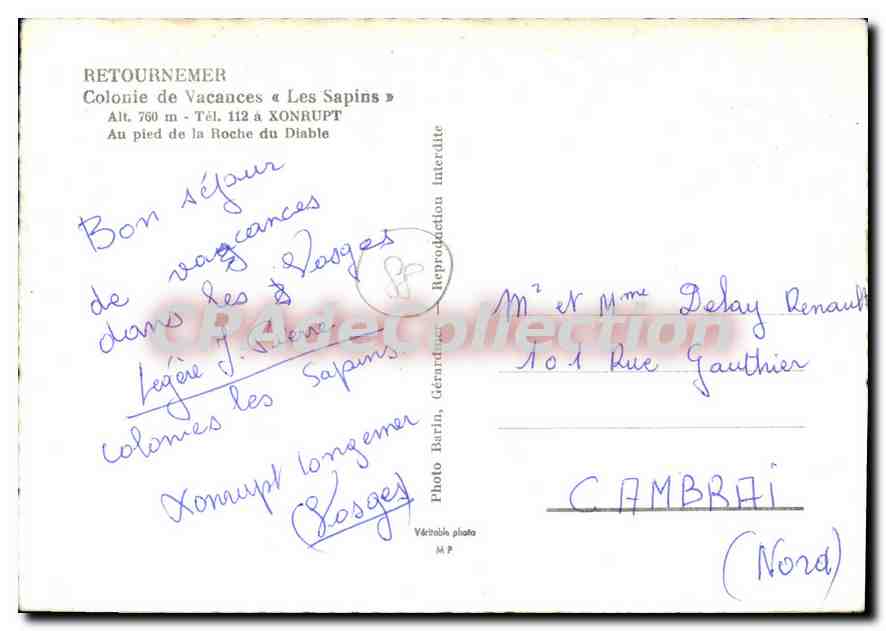 RETOURNEMER
Colonie de Vacances « Les Sapins »
Alt. 760 m - Tél. 112 à XONRUPT
Au pied de la Roche du Diable
Bon séjour
de vacances
dans les Vosges
Légère J. Pierre
Colonies les Sapins.
Xonrupt Longemer
(Vosges)
Photo Barin, Gérardmer — Reproduction Interdite
Véritable photo
M P
CPAdeCollection
Mr et Mme Delay Renault
101 Rue Gauthier
CAMBRAI
(Nord)